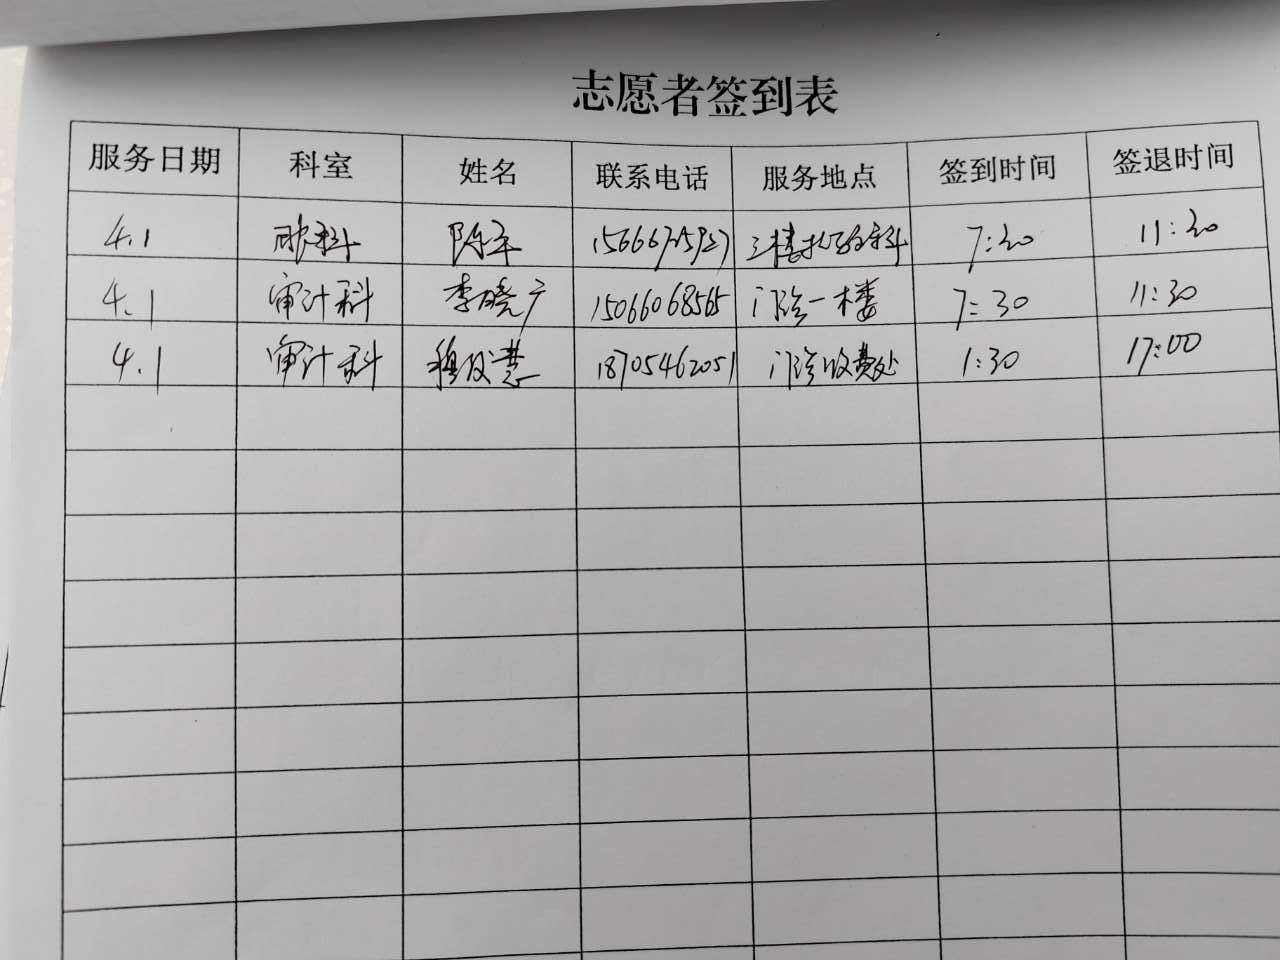 志愿者签到表
服务日期 科室 姓名 联系电话 服务地点 签到时间 签退时间
4.1 科 陈军 三楼 科 7:30 11:30
4.1 审计科 李晓广 15066068565 门诊一楼 7:30 11:30
4.1 审计科 穆 慧 18705462051 门诊收费处 1:30 17:00